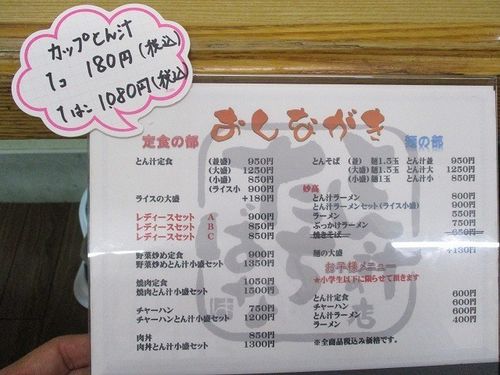 カップとん汁
1コ 180円(税込)
1はこ 1080円(税込)
おしながき
定食の部
とん汁定食 (並盛) 950円
(大盛) 1250円
(小盛) 850円
(ライス小 900円
ライスの大盛 +180円
レディースセット A 900円
レディースセット B 850円
レディースセット C 850円
野菜炒め定食 900円
野菜炒めとん汁小盛セット 1350円
焼肉定食 1050円
焼肉とん汁小盛セット 1500円
チャーハン 750円
チャーハンとん汁小盛セット 1200円
肉丼 850円
肉丼とん汁小盛セット 1300円
麺の部
とんそば (並盛) 麺1.5玉 とん汁並 950円
(大盛) 麺1.5玉 とん汁大 1250円
(小盛) 麺1玉 とん汁小 850円
妙高
とん汁ラーメン 800円
とん汁ラーメンセット(ライス小盛) 900円
ラーメン 550円
ぶっかけラーメン 750円
焼きそば 650円
麺の大盛 +130円
お子様メニュー
※小学生以下に限らせて頂きます
とん汁定食 600円
とん汁ラーメン 600円
ラーメン 400円
※全商品税込み価格です。